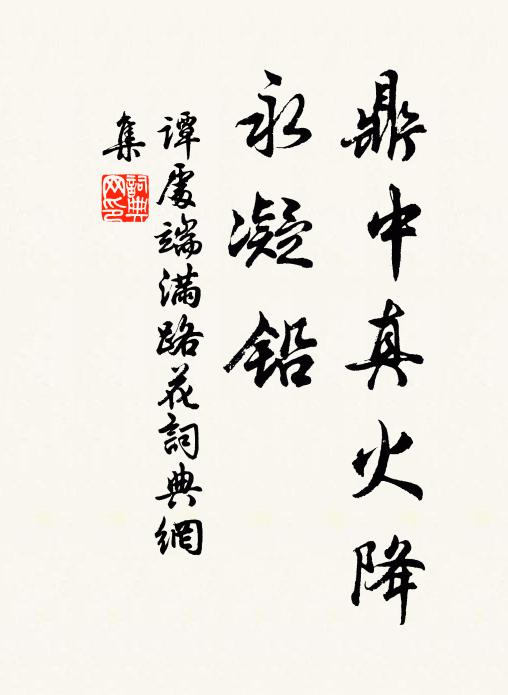 鼎中真火降
永凝鉛
譚處端滿路花詞典網
集
詞典網印